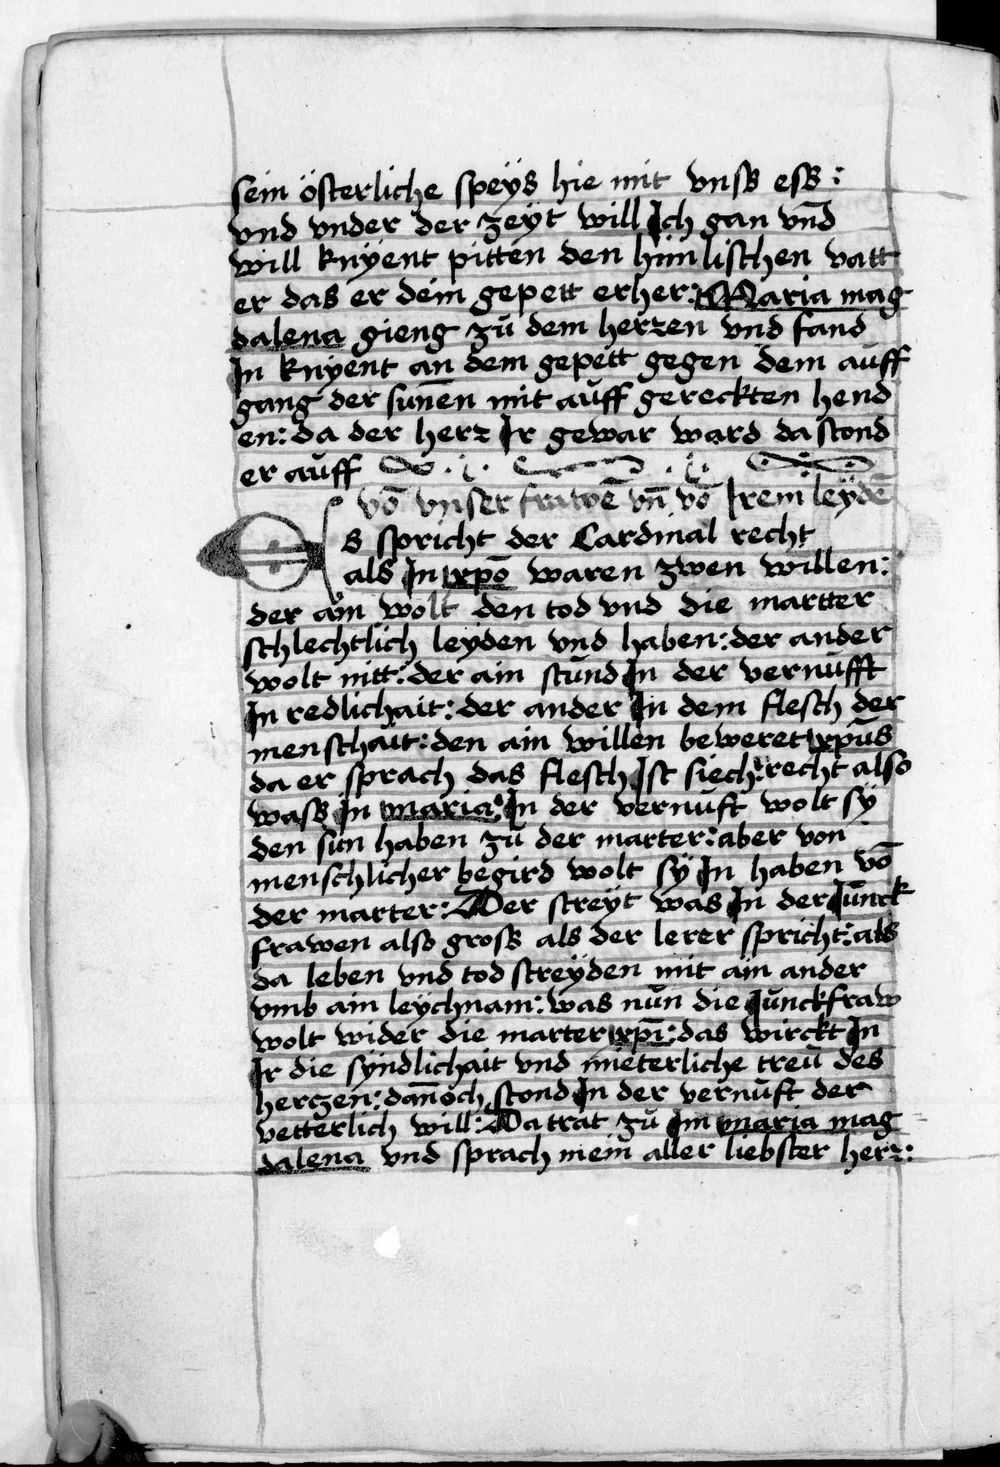 sein österliche speÿs hie mit vnsß esß:
vnd vnder der zeÿt will Ich gan vn̄d
will knÿent pitten den him̄lischen vatt
er das er dein gepett erher: Maria mag
dalena gieng zů dem herzen vnd fand
In knÿent an dem gepett gegen dem aůff
gang der sun̄en mit aůff gereckten hend
en: da der herz Ir gewar ward da stond
er aůff
vō vnser frawē vn̄ vō Irem leÿdē
Es spricht der Cardinal recht
als In xpō waren zwen willen:
der ain wolt den tod vnd die martter
schlechtlich leÿden vnd haben: der ander
wolt nitt: der ain stůnd In der vernůfft
In redlichait: der ander In dem flesch der
menschait: den ain willen beweret xpūs
da er sprach das flesch Ist siech: recht also
wasß In maria: In der vernůft wolt sÿ
den sůn haben zů der marter: aber von
menschlicher begird wolt sÿ In haben vō
der marter: Der streÿt was In der Iůnck
frawen also grosß als der lerer spricht: als
da leben vnd tod streÿden mit ain ander
vmb ain leÿchnam: was nůn die Iůnckfraw
wolt wider die marter xpī: das wirckt In
Ir die sÿndlichait vnd mieterliche treů des
herczen: dan̄och stond In der vernůft der
vetterlich will: Da trat zů Im maria mag
dalena vnd sprach mein aller liebster herz: